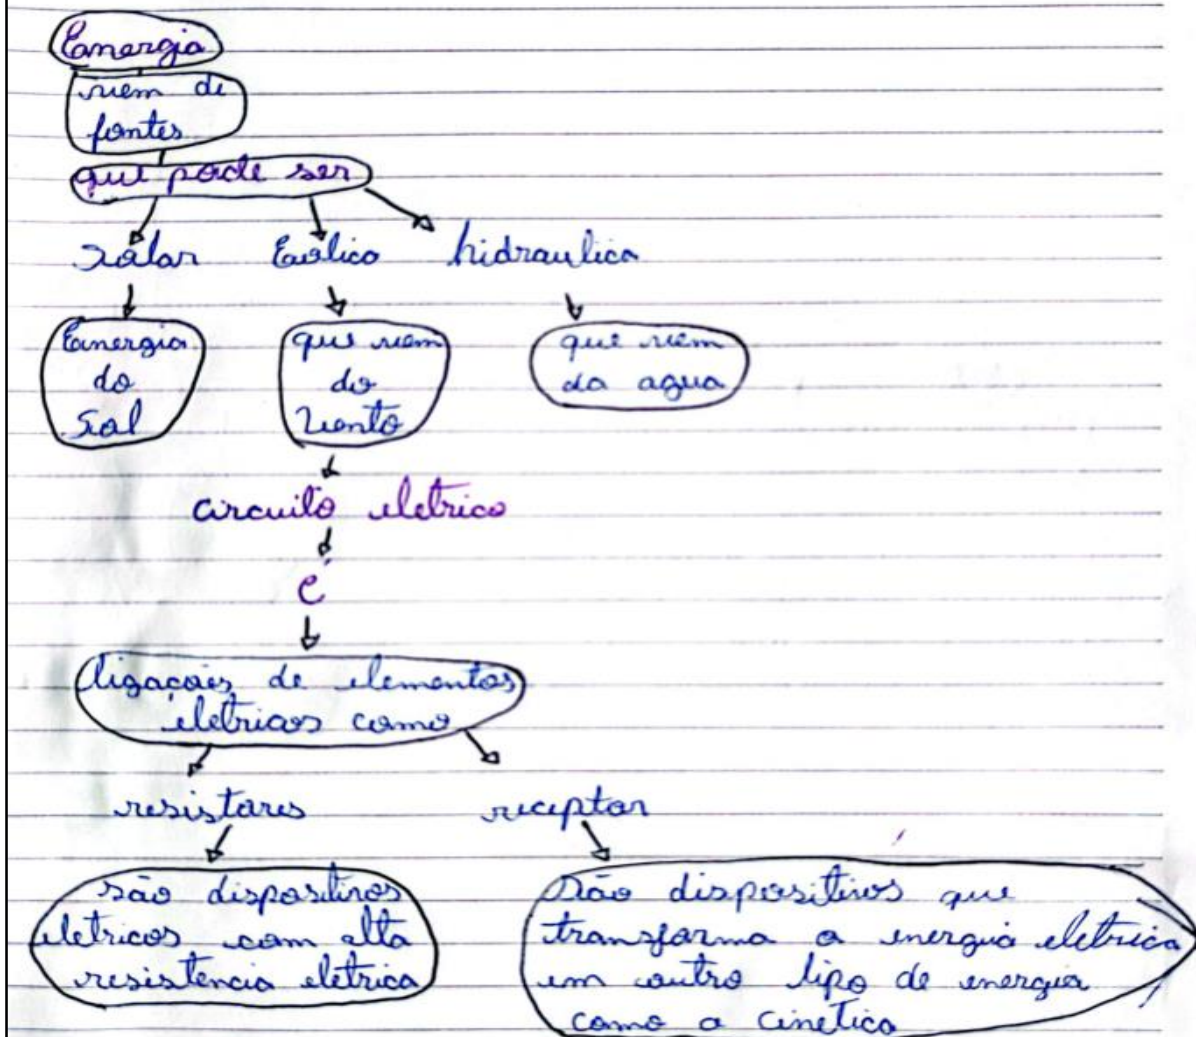 Energia
vem de
fontes
que pode ser
Solar Eólica hidraulica
Energia
do
Sol
que vem
do
Vento
que vem
da agua
circuito eletrico
é
ligações de elementos
eletricos como
resistores receptor
são dispositivos
eletricos com alta
resistencia eletrica
são dispositivos que
transforma a energia eletrica
em outro tipo de energia
como a cinetica